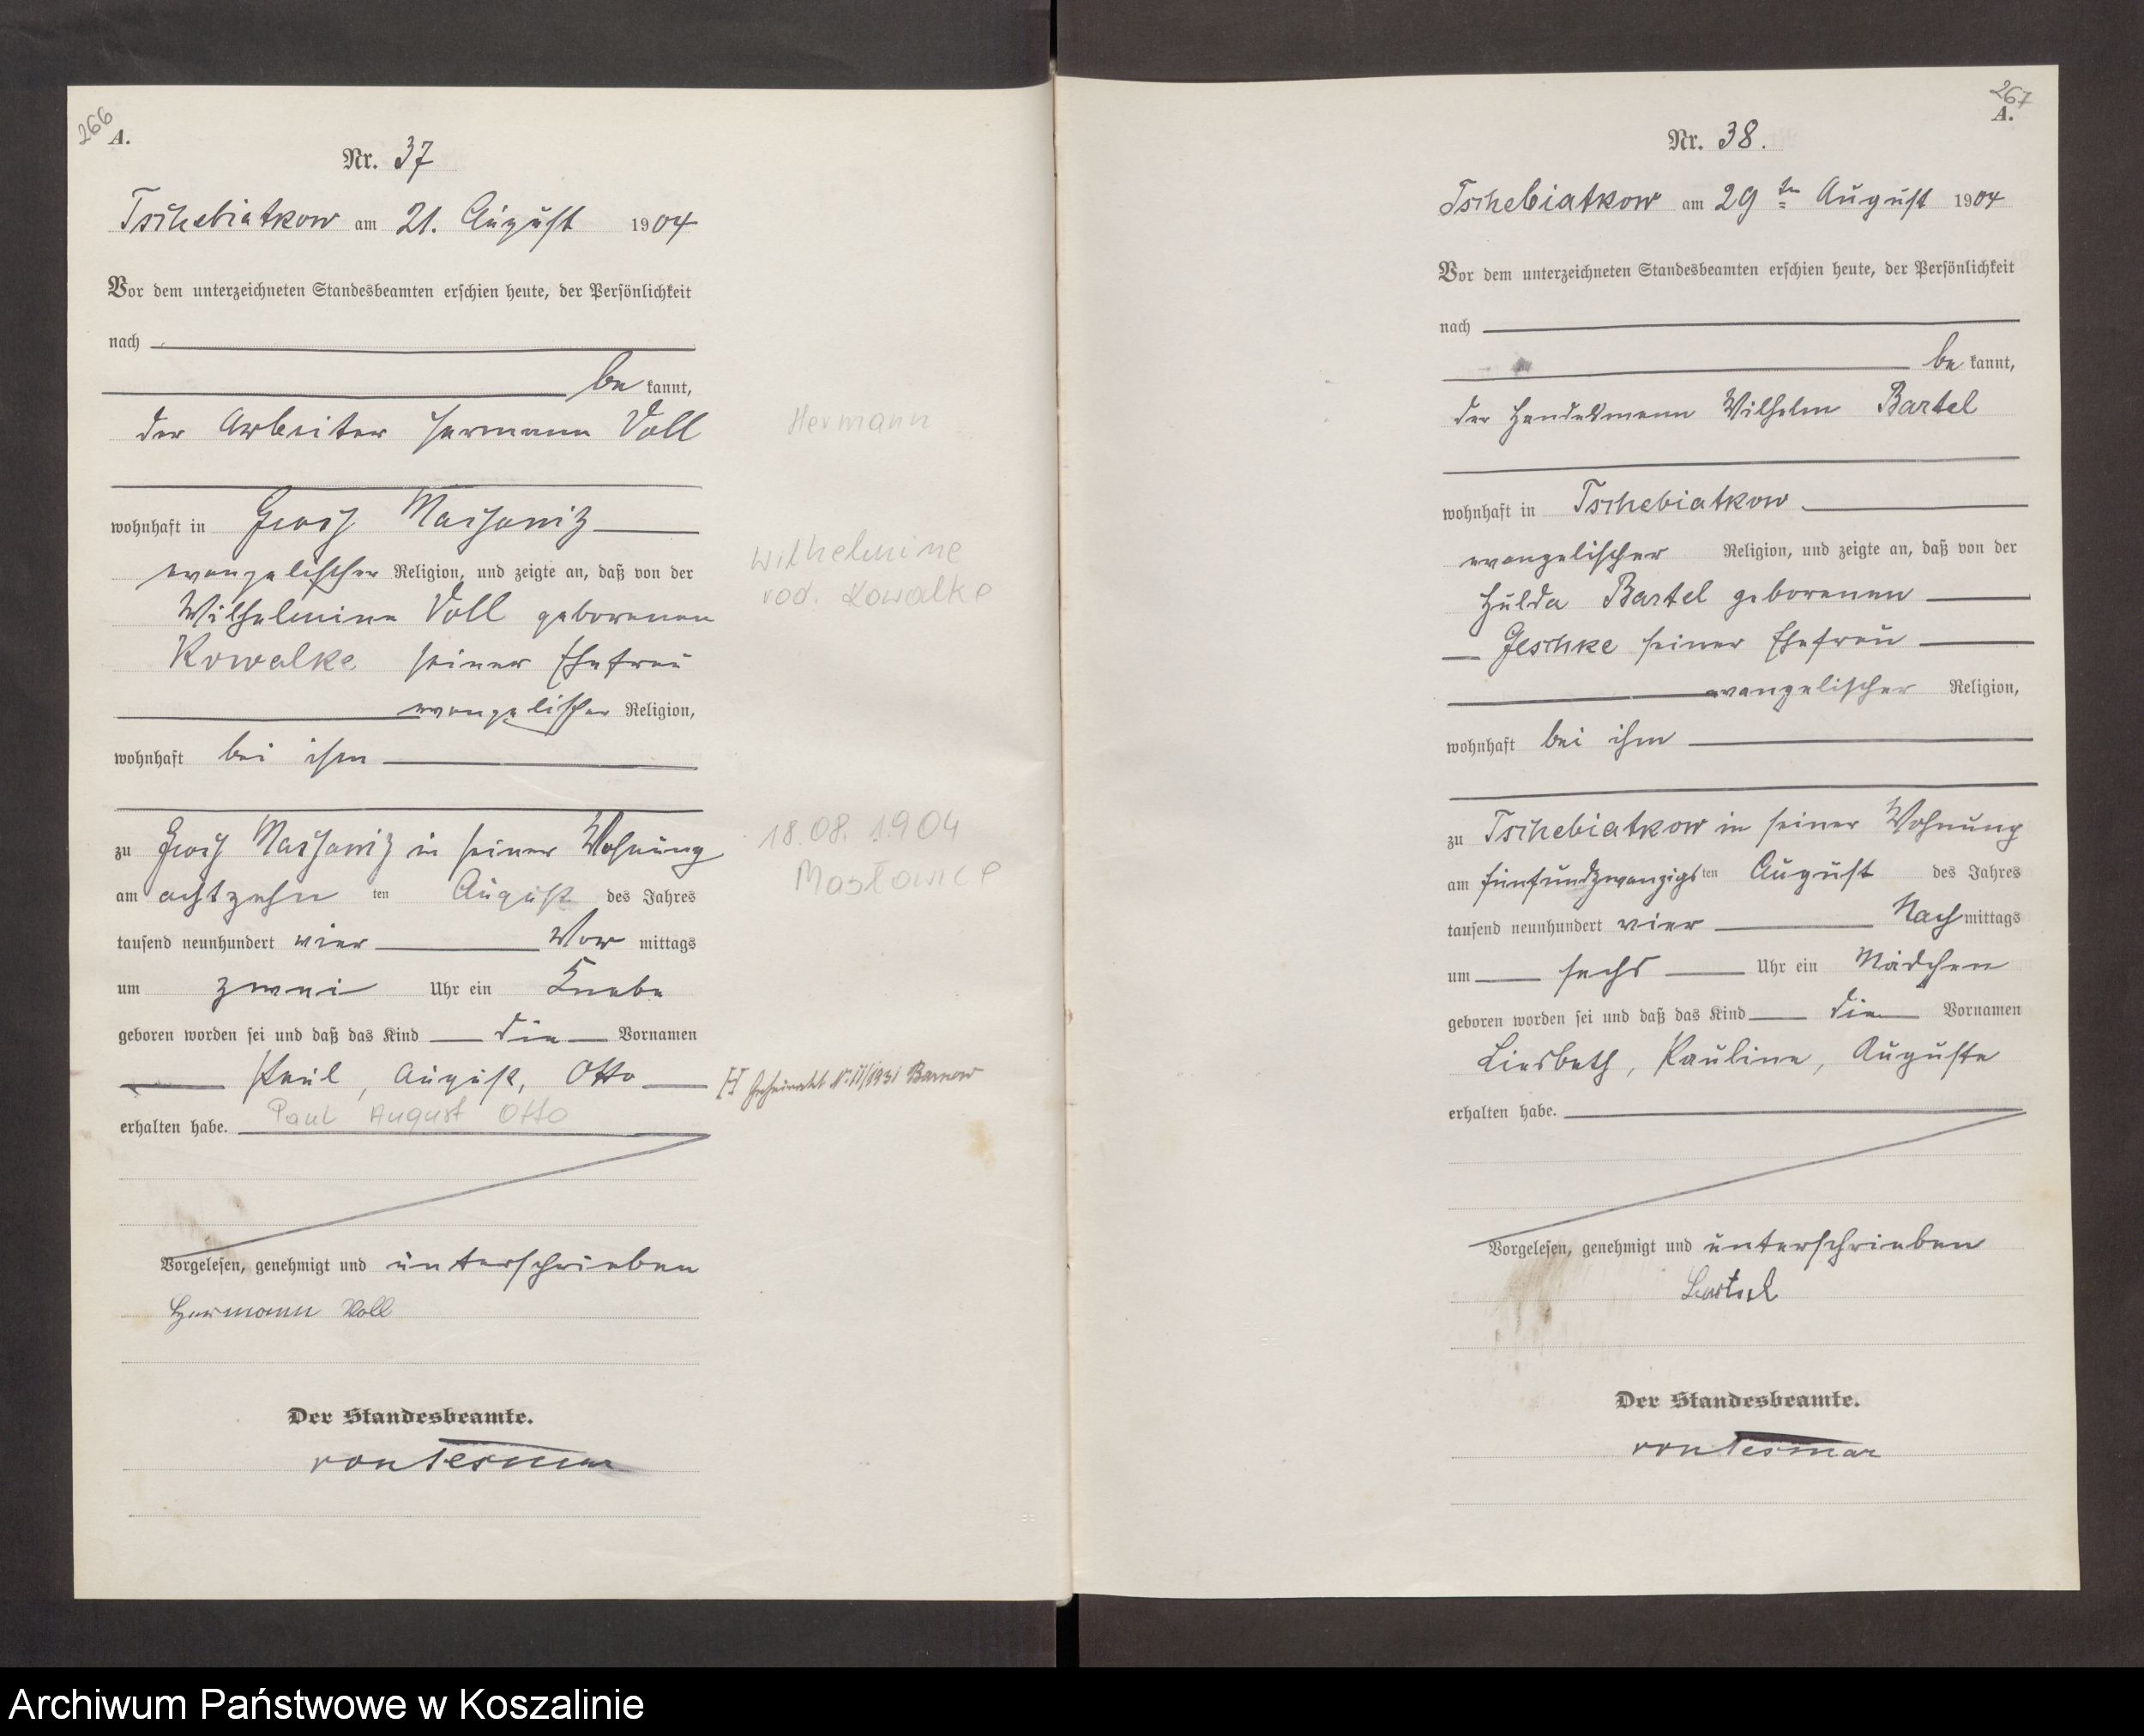 266
A.
Nr. 37
Tschebiatkow am 21. August 1904
Vor dem unterzeichneten Standesbeamten erschien heute, der Persönlichkeit
nach
be kannt,
der Arbeiter Hermann Voll
Hermann
wohnhaft in Gross Massowitz
evangelischer Religion, und zeigte an, daß von der
Wilhelmine Voll geborenen
Kowalke seiner Ehefrau
Wilhelmine
rod. Kowalke
evangelischer Religion,
wohnhaft bei ihm
zu Gross Massowitz in seiner Wohnung
am achtzehn ten August des Jahres
18.08.1904
Masłowice
tausend neunhundert vier Vor mittags
um zwei Uhr ein Knabe
geboren worden sei und daß das Kind die Vornamen
Paul, August, Otto
H Geheiratet Nr. 11/1931 Barnow
Paul August Otto
erhalten habe.
Vorgelesen, genehmigt und unterschrieben
Hermann Voll
Der Standesbeamte.
von Tesmar
267
A.
Nr. 38.
Tschebiatkow am 29ten August 1904
Vor dem unterzeichneten Standesbeamten erschien heute, der Persönlichkeit
nach
be kannt,
der Handelsmann Wilhelm Bartel
wohnhaft in Tschebiatkow
evangelischer Religion, und zeigte an, daß von der
Hulda Bartel geborenen
Geschke seiner Ehefrau
evangelischer Religion,
wohnhaft bei ihm
zu Tschebiatkow in seiner Wohnung
am fünfundzwanzigsten August des Jahres
tausend neunhundert vier Nach mittags
um sechs Uhr ein Mädchen
geboren worden sei und daß das Kind die Vornamen
Liesbeth, Pauline, Auguste
erhalten habe.
Vorgelesen, genehmigt und unterschrieben
Bartel
Der Standesbeamte.
von Tesmar
Archiwum Państwowe w Koszalinie